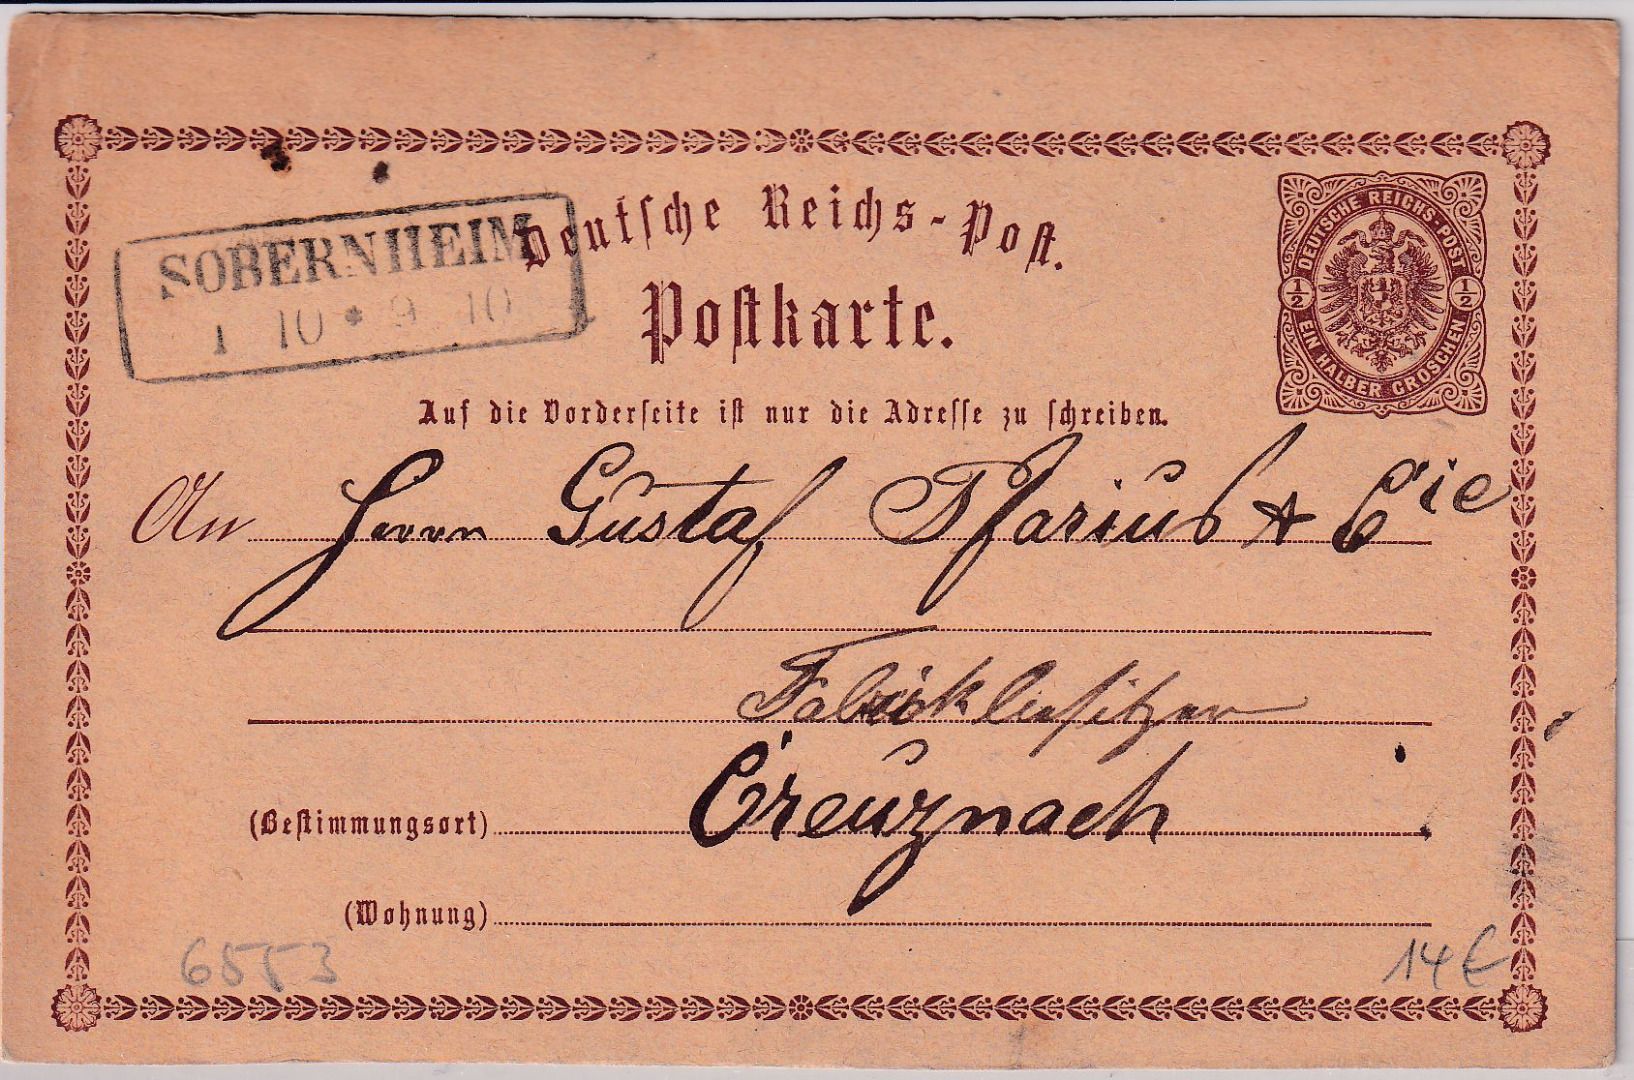 SOBERNHEIM
1 10 * 9 10
Deutsche Reichs-Post.
Postkarte.
DEUTSCHE REICHS-POST
1/2 1/2
EIN HALBER GROSCHEN
Auf die Vorderseite ist nur die Adresse zu schreiben.
An Herrn Gustaf Pfarius & Cie
Fabrikbesitzer
(Bestimmungsort) Creuznach
(Wohnung)
6553 14 €